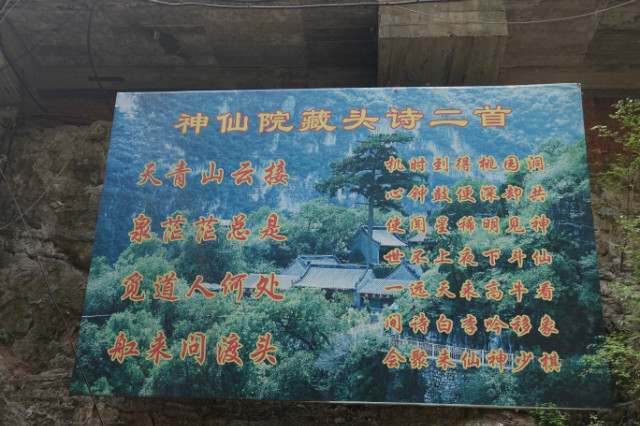 神仙院藏头诗二首
天青山云接
泉茫茫总是
觅道人何处
舡来问渡头
机时到得桃园洞
心钟鼓便深却共
使闻星稀明见神
世不上夜下斗仙
一远天来高牛看
问诗白李吟移象
会聚来仙神少棋